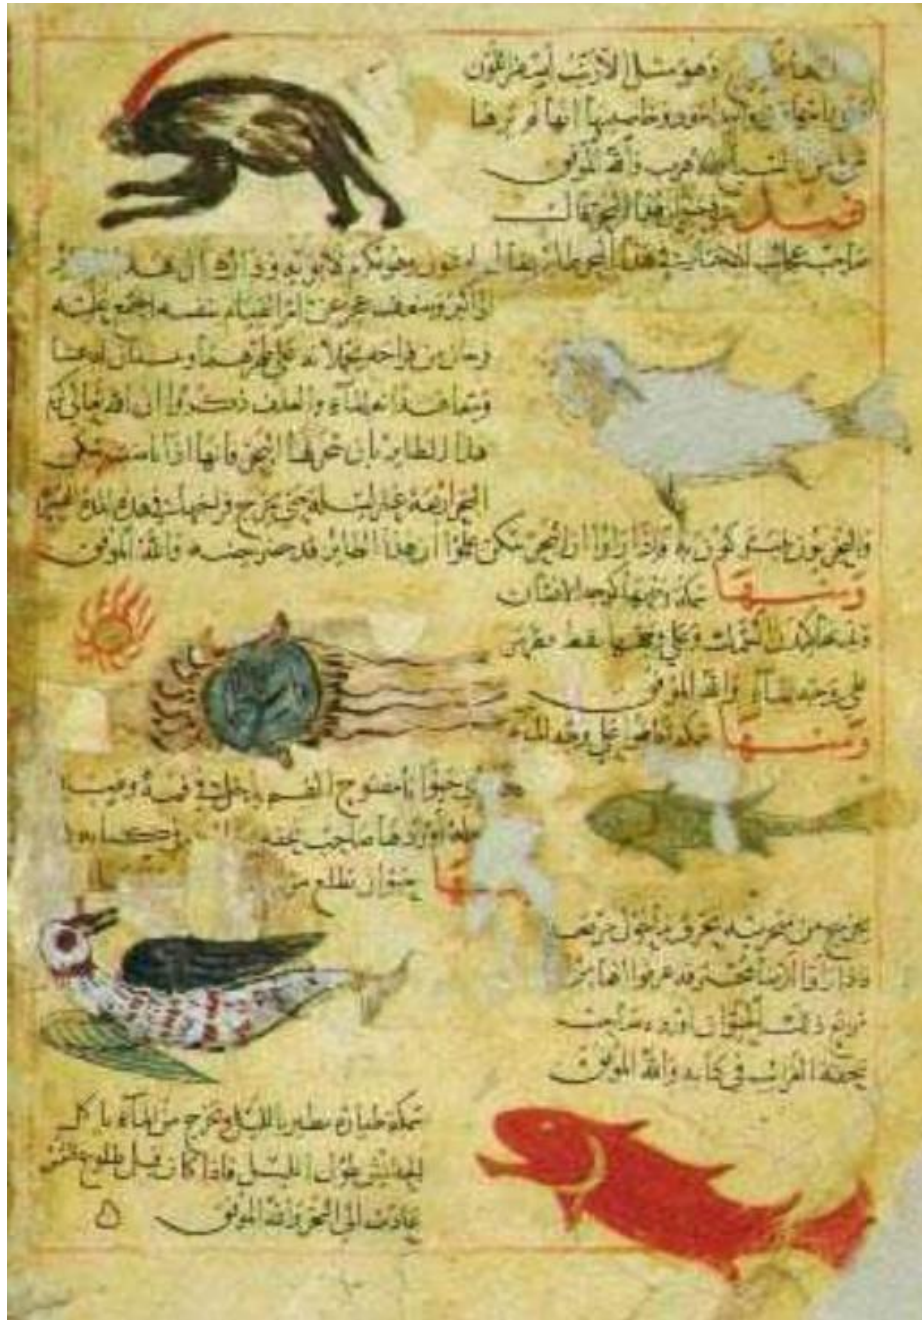 وهو مثل الارنب اصفر اللون
قرن واحد اسود وخاصيتها انها لم يرها
شيء من السباع الا هرب والله الموفق
فصل في حيوان هذا البحر قال
صاحب عجائب الاخبار في هذا البحر طائر يقال له وهو مكرم لابويه وذلك ان هذا الطائر
اذا كبر وضعف عجز عن امر القيام بنفسه اجتمع عليه
فرخان من فراخه يحملانه على ظهرهما ويبنيان له عشا
ويتعاهدانه بالماء والعلف ذكروا ان الله تعالى اكرم
هذا الطائر بان سخر لها البحر فانها اذا باضت سكن
البحر اربعة عشر ليلة حتى يخرج فراخها في هذه المدة اليسيرة
والبحريون يتبركون به فاذا راوا ان البحر سكن علموا ان هذا الطائر قد حضر بيضه والله الموفق
ومنها سمكة وجهها كوجه الانسان
وبدنها كبدن السمك وعلى وجهها نقط تظهر
على وجه الماء والله الموفق
ومنها سمكة تطفوا على وجه الماء
حيوانا مفتوح الفم يدخل في فمه
اوردها صاحب تحفه
حيوان يطلع من
يخرج من منخريه يحرق ما حول
فاذا راوا ارضا محترقه عرفوا انها من
ذلك الحيوان اورده صاحب
تحفة الغرايب في كتابه والله الموفق
سمكة طياره تطير بالليل وتخرج من الماء تاكل
الحشيش طول الليل فاذا كان قبل طلوع الشمس
عادت الى البحر والله الموفق ه